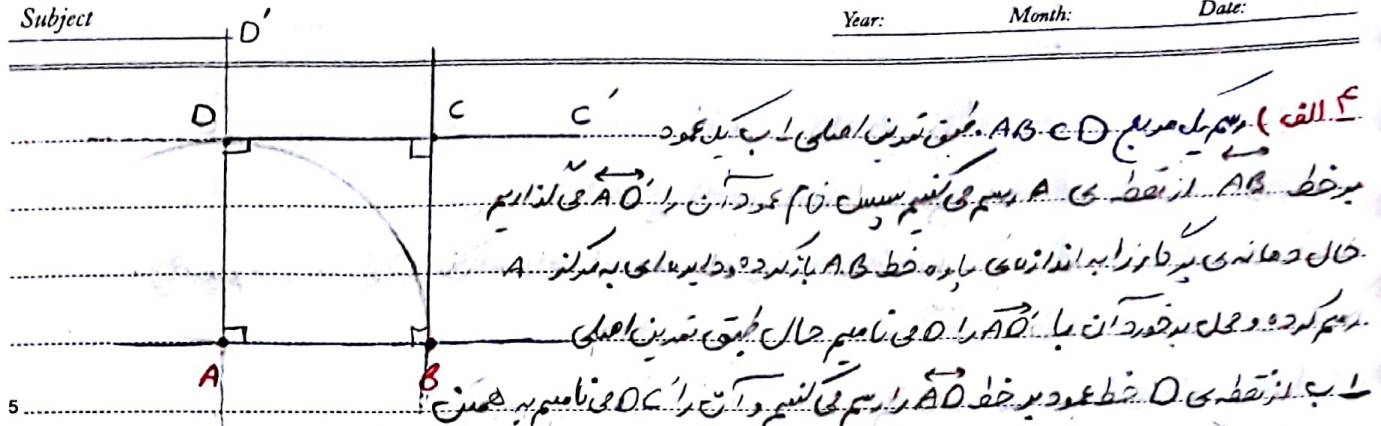 Subject
Year: Month: Date:
D'
D C C'
۴ الف) رسم یک مربع ABCD. طبق تمرین اصلی ۱ ب یک عمود
بر خط AB از نقطه ی A رسم می کنیم سپس نام عمود آن را AD' می گذاریم
حال دهانه ی پرگار را به اندازه ی پاره خط AB باز کرده و دایره ای به مرکز A
رسم کرده و محل برخورد آن با AD' را D می نامیم حال طبق تمرین اصلی
۱ ب از نقطه ی D خط عمود بر خط AD را رسم می کنیم و آن را DC' می نامیم به همین
A B
5